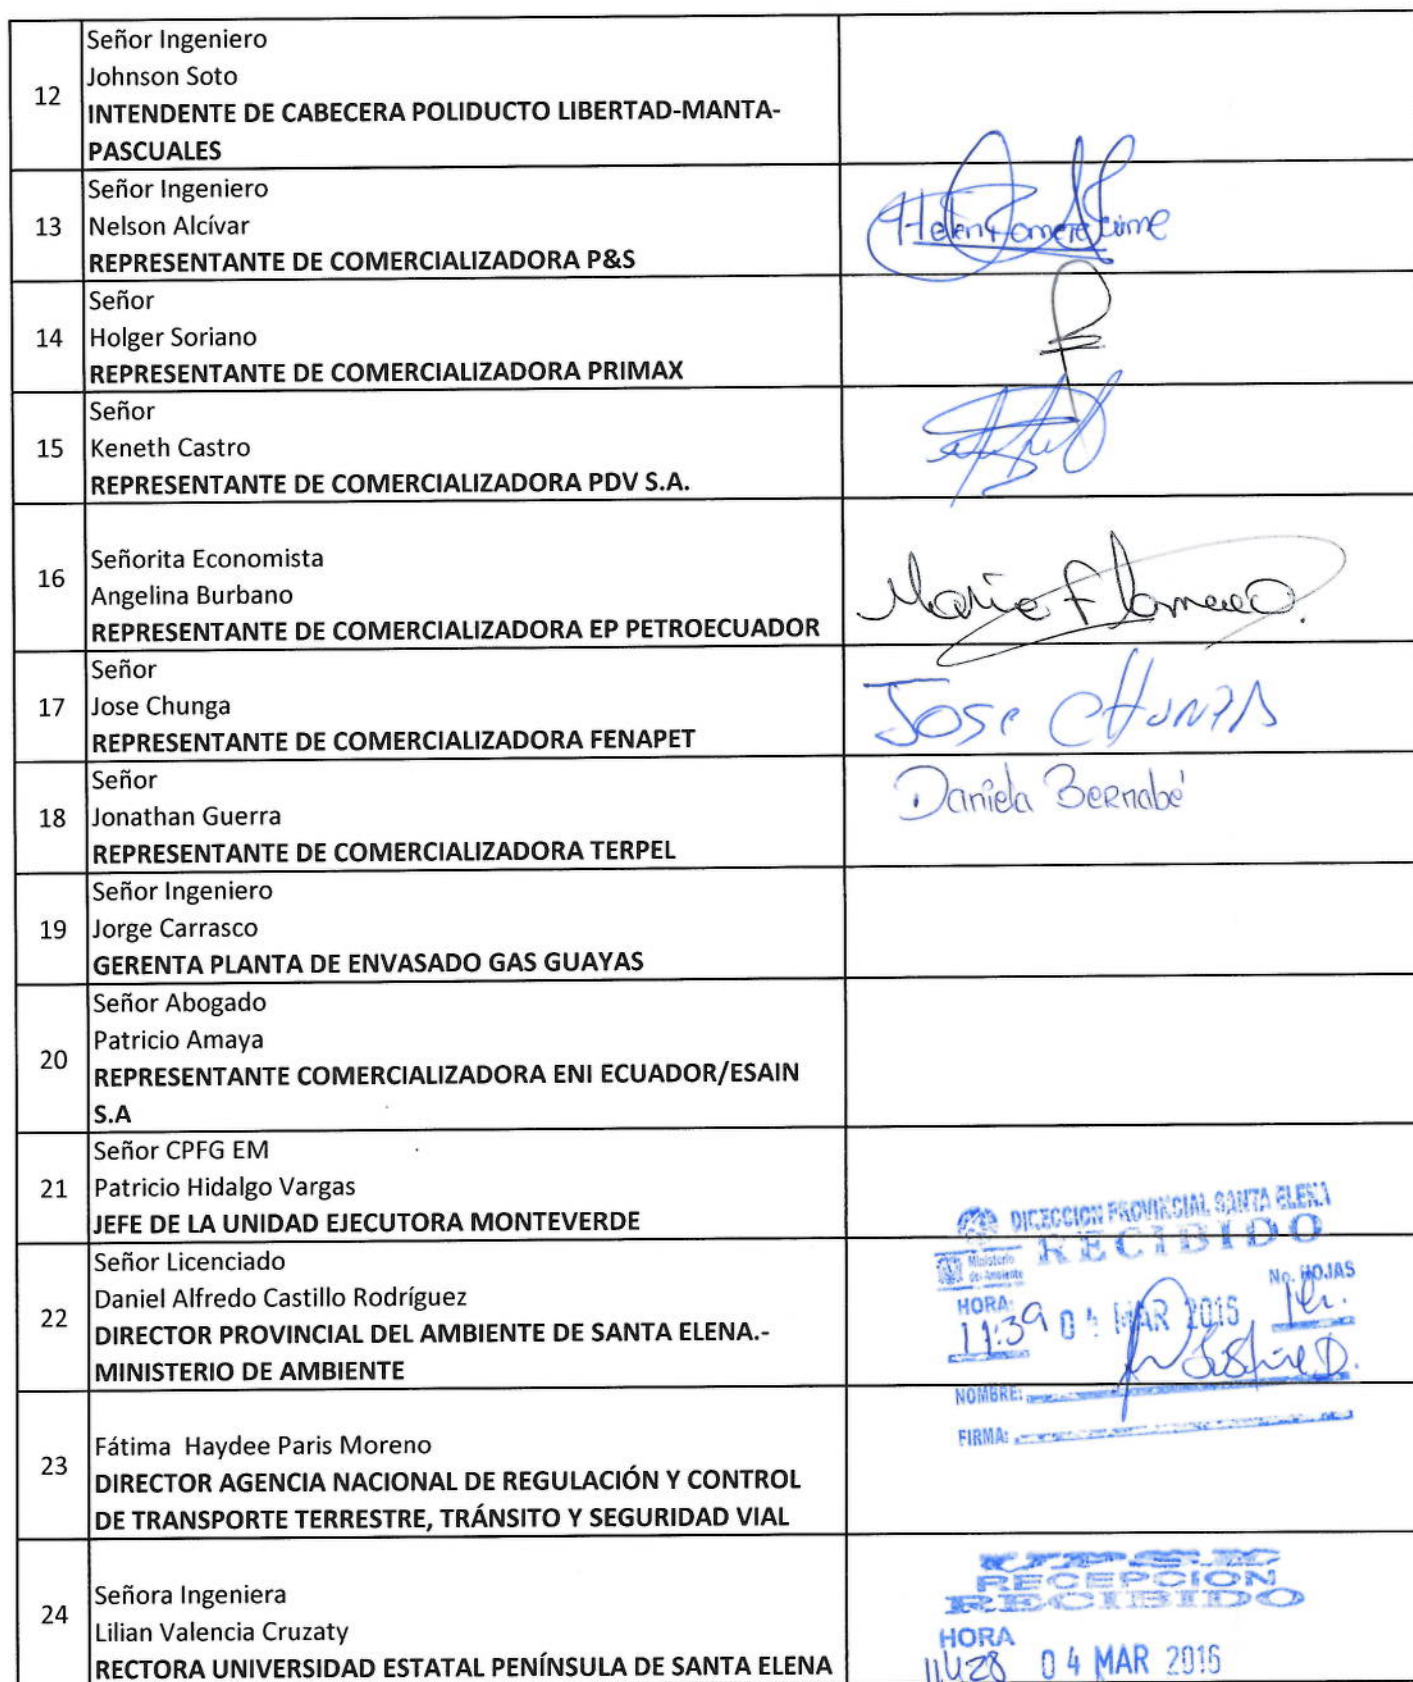 12
Señor Ingeniero
Johnson Soto
INTENDENTE DE CABECERA POLIDUCTO LIBERTAD-MANTA-
PASCUALES
13
Señor Ingeniero
Nelson Alcívar
REPRESENTANTE DE COMERCIALIZADORA P&S
Helen
14
Señor
Holger Soriano
REPRESENTANTE DE COMERCIALIZADORA PRIMAX
15
Señor
Keneth Castro
REPRESENTANTE DE COMERCIALIZADORA PDV S.A.
16
Señorita Economista
Angelina Burbano
REPRESENTANTE DE COMERCIALIZADORA EP PETROECUADOR
17
Señor
Jose Chunga
REPRESENTANTE DE COMERCIALIZADORA FENAPET
Jose CHUNGA
18
Señor
Jonathan Guerra
REPRESENTANTE DE COMERCIALIZADORA TERPEL
Daniela Bernabé
19
Señor Ingeniero
Jorge Carrasco
GERENTA PLANTA DE ENVASADO GAS GUAYAS
20
Señor Abogado
Patricio Amaya
REPRESENTANTE COMERCIALIZADORA ENI ECUADOR/ESAIN
S.A
21
Señor CPFG EM
Patricio Hidalgo Vargas
JEFE DE LA UNIDAD EJECUTORA MONTEVERDE
22
Señor Licenciado
Daniel Alfredo Castillo Rodríguez
DIRECTOR PROVINCIAL DEL AMBIENTE DE SANTA ELENA.-
MINISTERIO DE AMBIENTE
DIRECCION PROVINCIAL SANTA ELENA
RECIBIDO
Ministerio
del Ambiente
No. HOJAS
HORA:
11:39 04 MAR 2016
NOMBRE:
FIRMA:
23
Fátima Haydee Paris Moreno
DIRECTOR AGENCIA NACIONAL DE REGULACIÓN Y CONTROL
DE TRANSPORTE TERRESTRE, TRÁNSITO Y SEGURIDAD VIAL
24
Señora Ingeniera
Lilian Valencia Cruzaty
RECTORA UNIVERSIDAD ESTATAL PENÍNSULA DE SANTA ELENA
UPSE
RECEPCION
RECIBIDO
HORA
11h28 04 MAR 2016